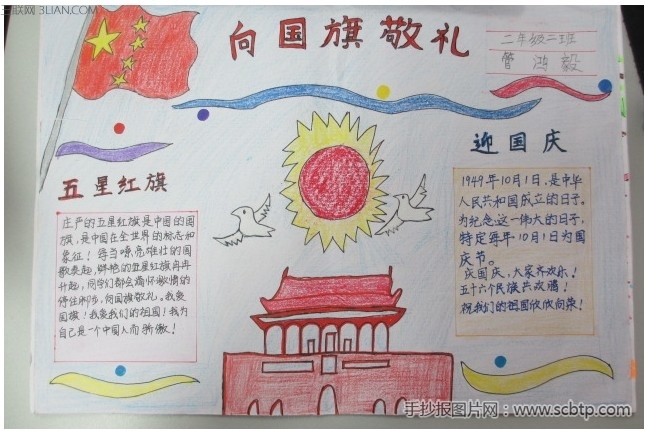 三联网 3LIAN.COM
向国旗敬礼
二年级二班
管鸿毅
迎国庆
五星红旗
1949年10月1日,是中华
人民共和国成立的日子。
为纪念这一伟大的日子,
特定每年10月1日为国
庆节。
庆国庆,大家齐欢乐!
五十六个民族共欢腾!
祝我们的祖国欣欣向荣!
庄严的五星红旗是中国的国
旗,是中国在全世界的标志和
象征!每当嘹亮雄壮的国
歌奏起,鲜艳的五星红旗冉冉
升起,同学们都会满怀激情的
停住脚步,向国旗敬礼。我爱
国旗!我爱我们的祖国!我为
自己是一个中国人而骄傲!
手抄报图片网:www.scbtp.com